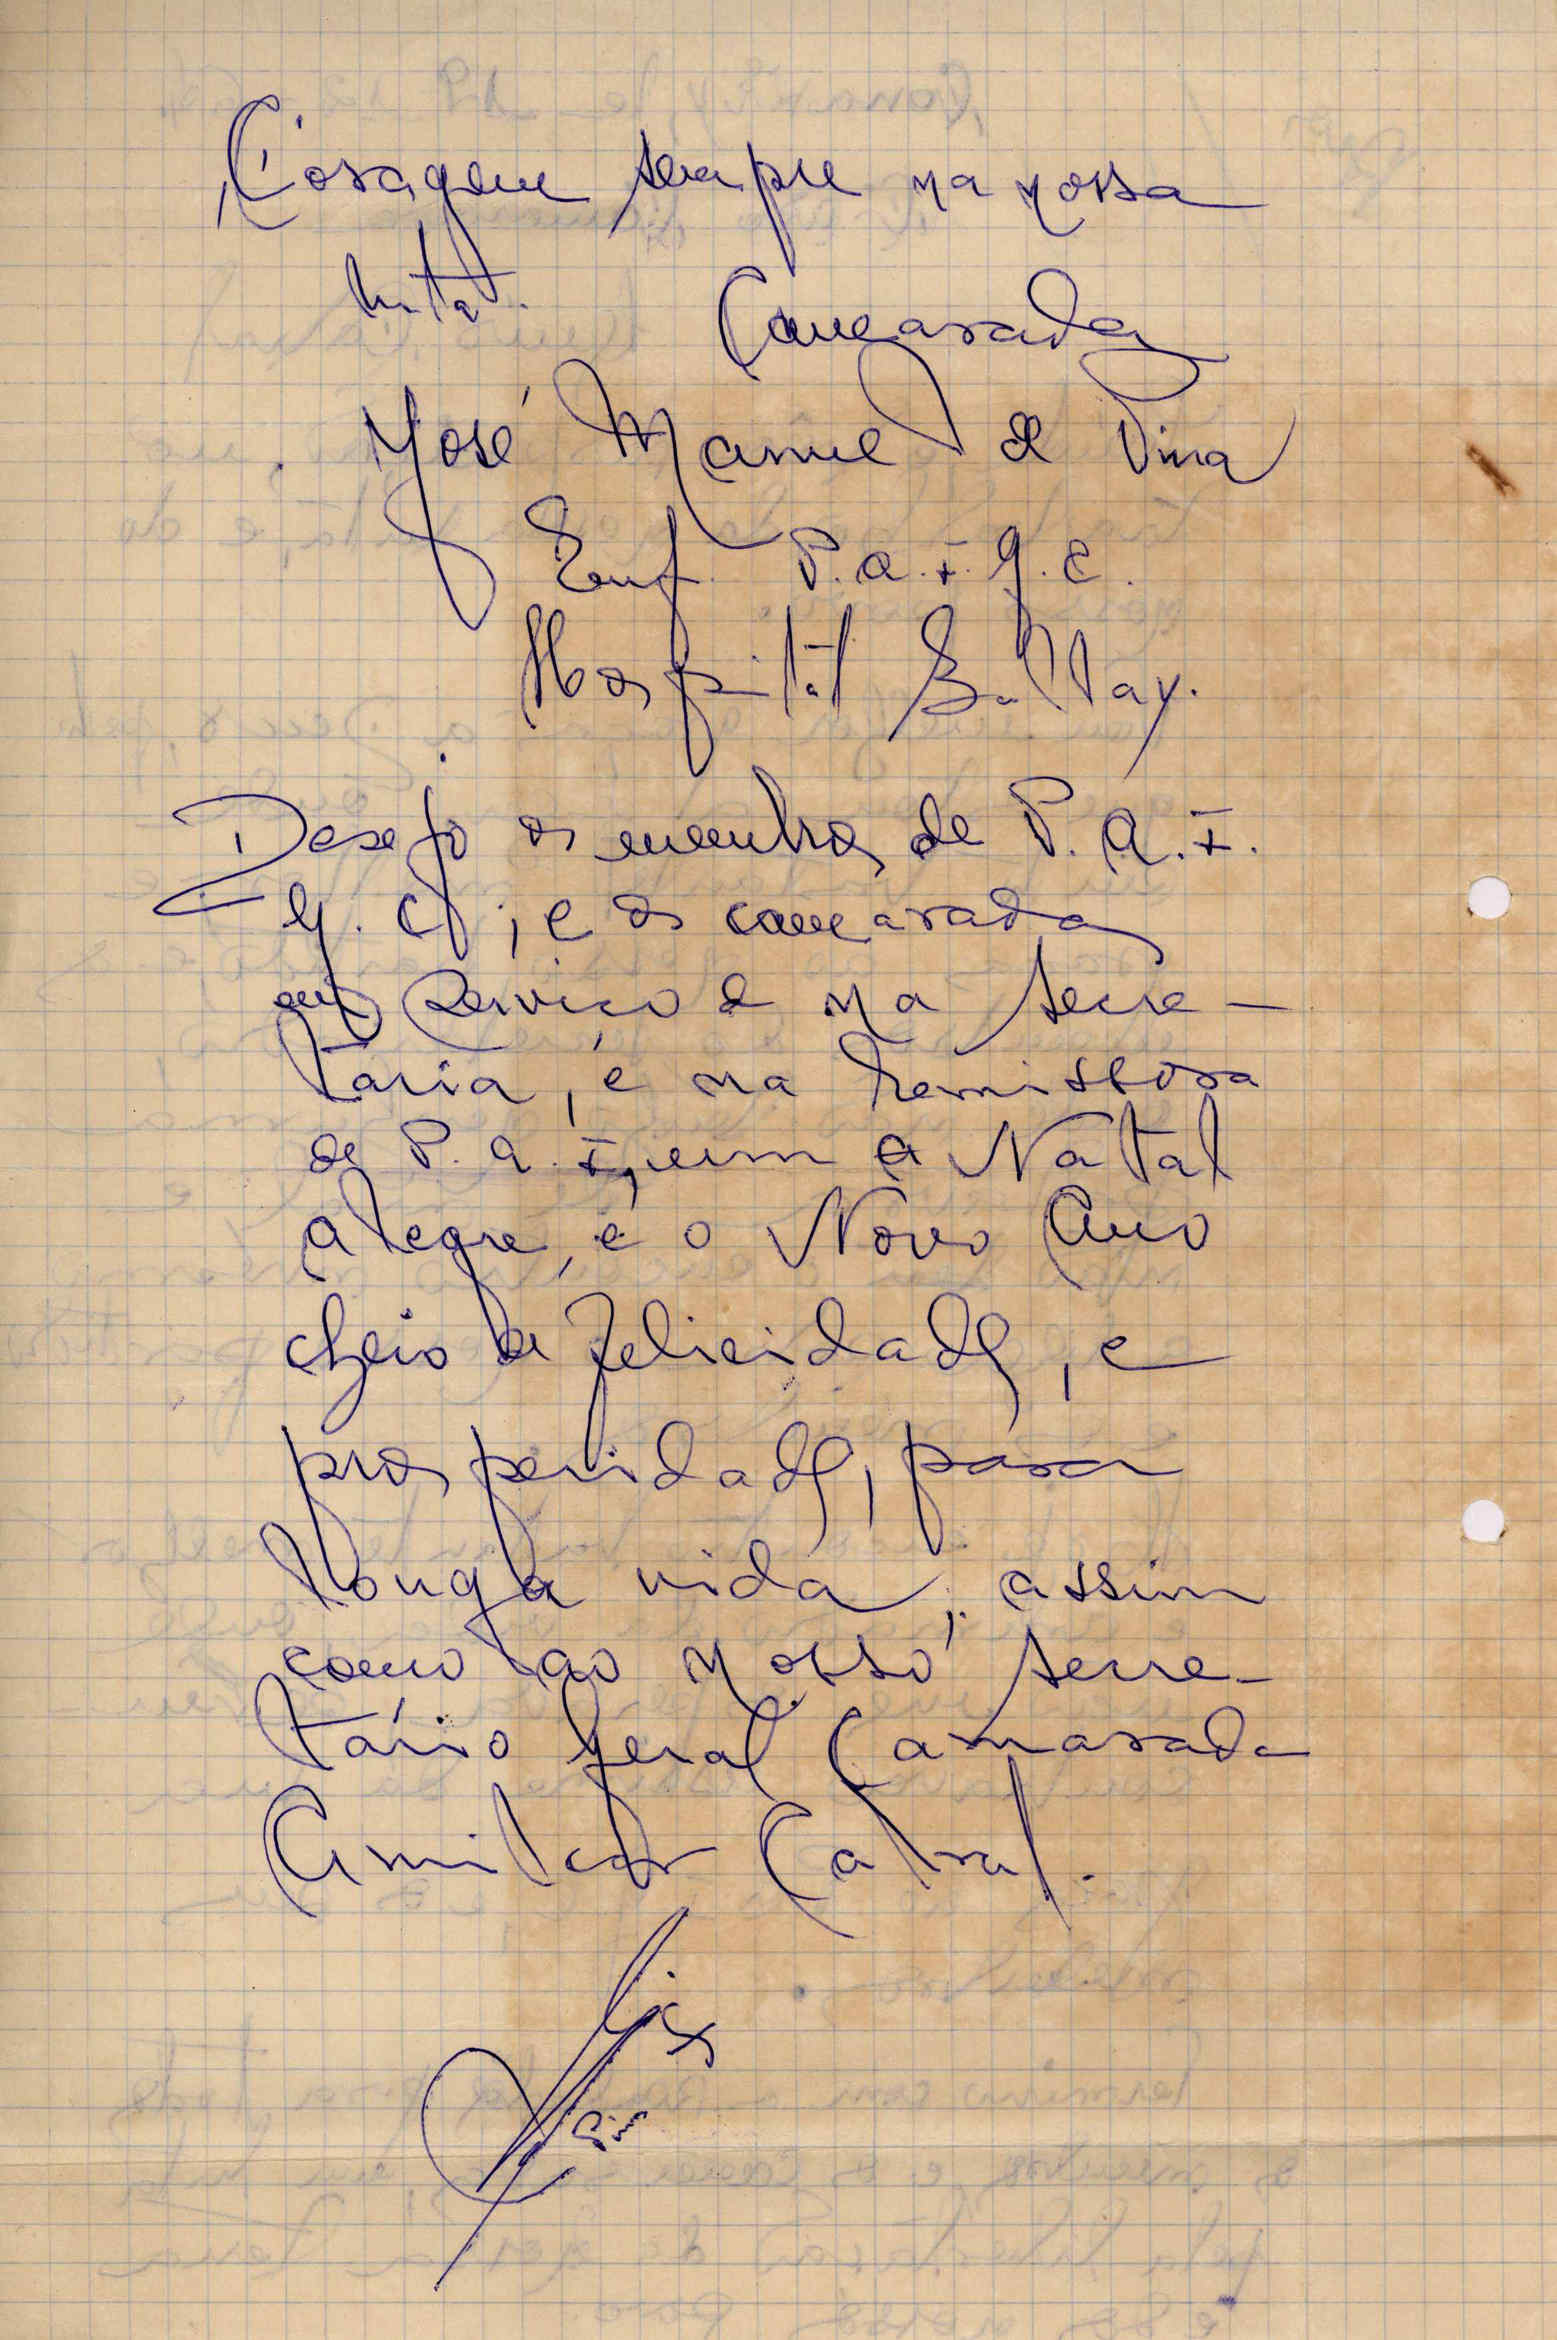 Coragem sempre na nossa
luta. Camarada
José Manuel de Pina
Enf. P.A.I.G.C.
Hospital Ballay.
Desejo os membros de P.A.I.
G.C., e os camaradas
em Serviço de na secre-
taria, e na Remissora
de P.A.I, um a Natal
alegre, e o Novo Ano
cheio de felicidade, e
prosperidade, para
longa vida, assim
como ao nosso secre-
tário geral Camarada
Amilcar Cabral.